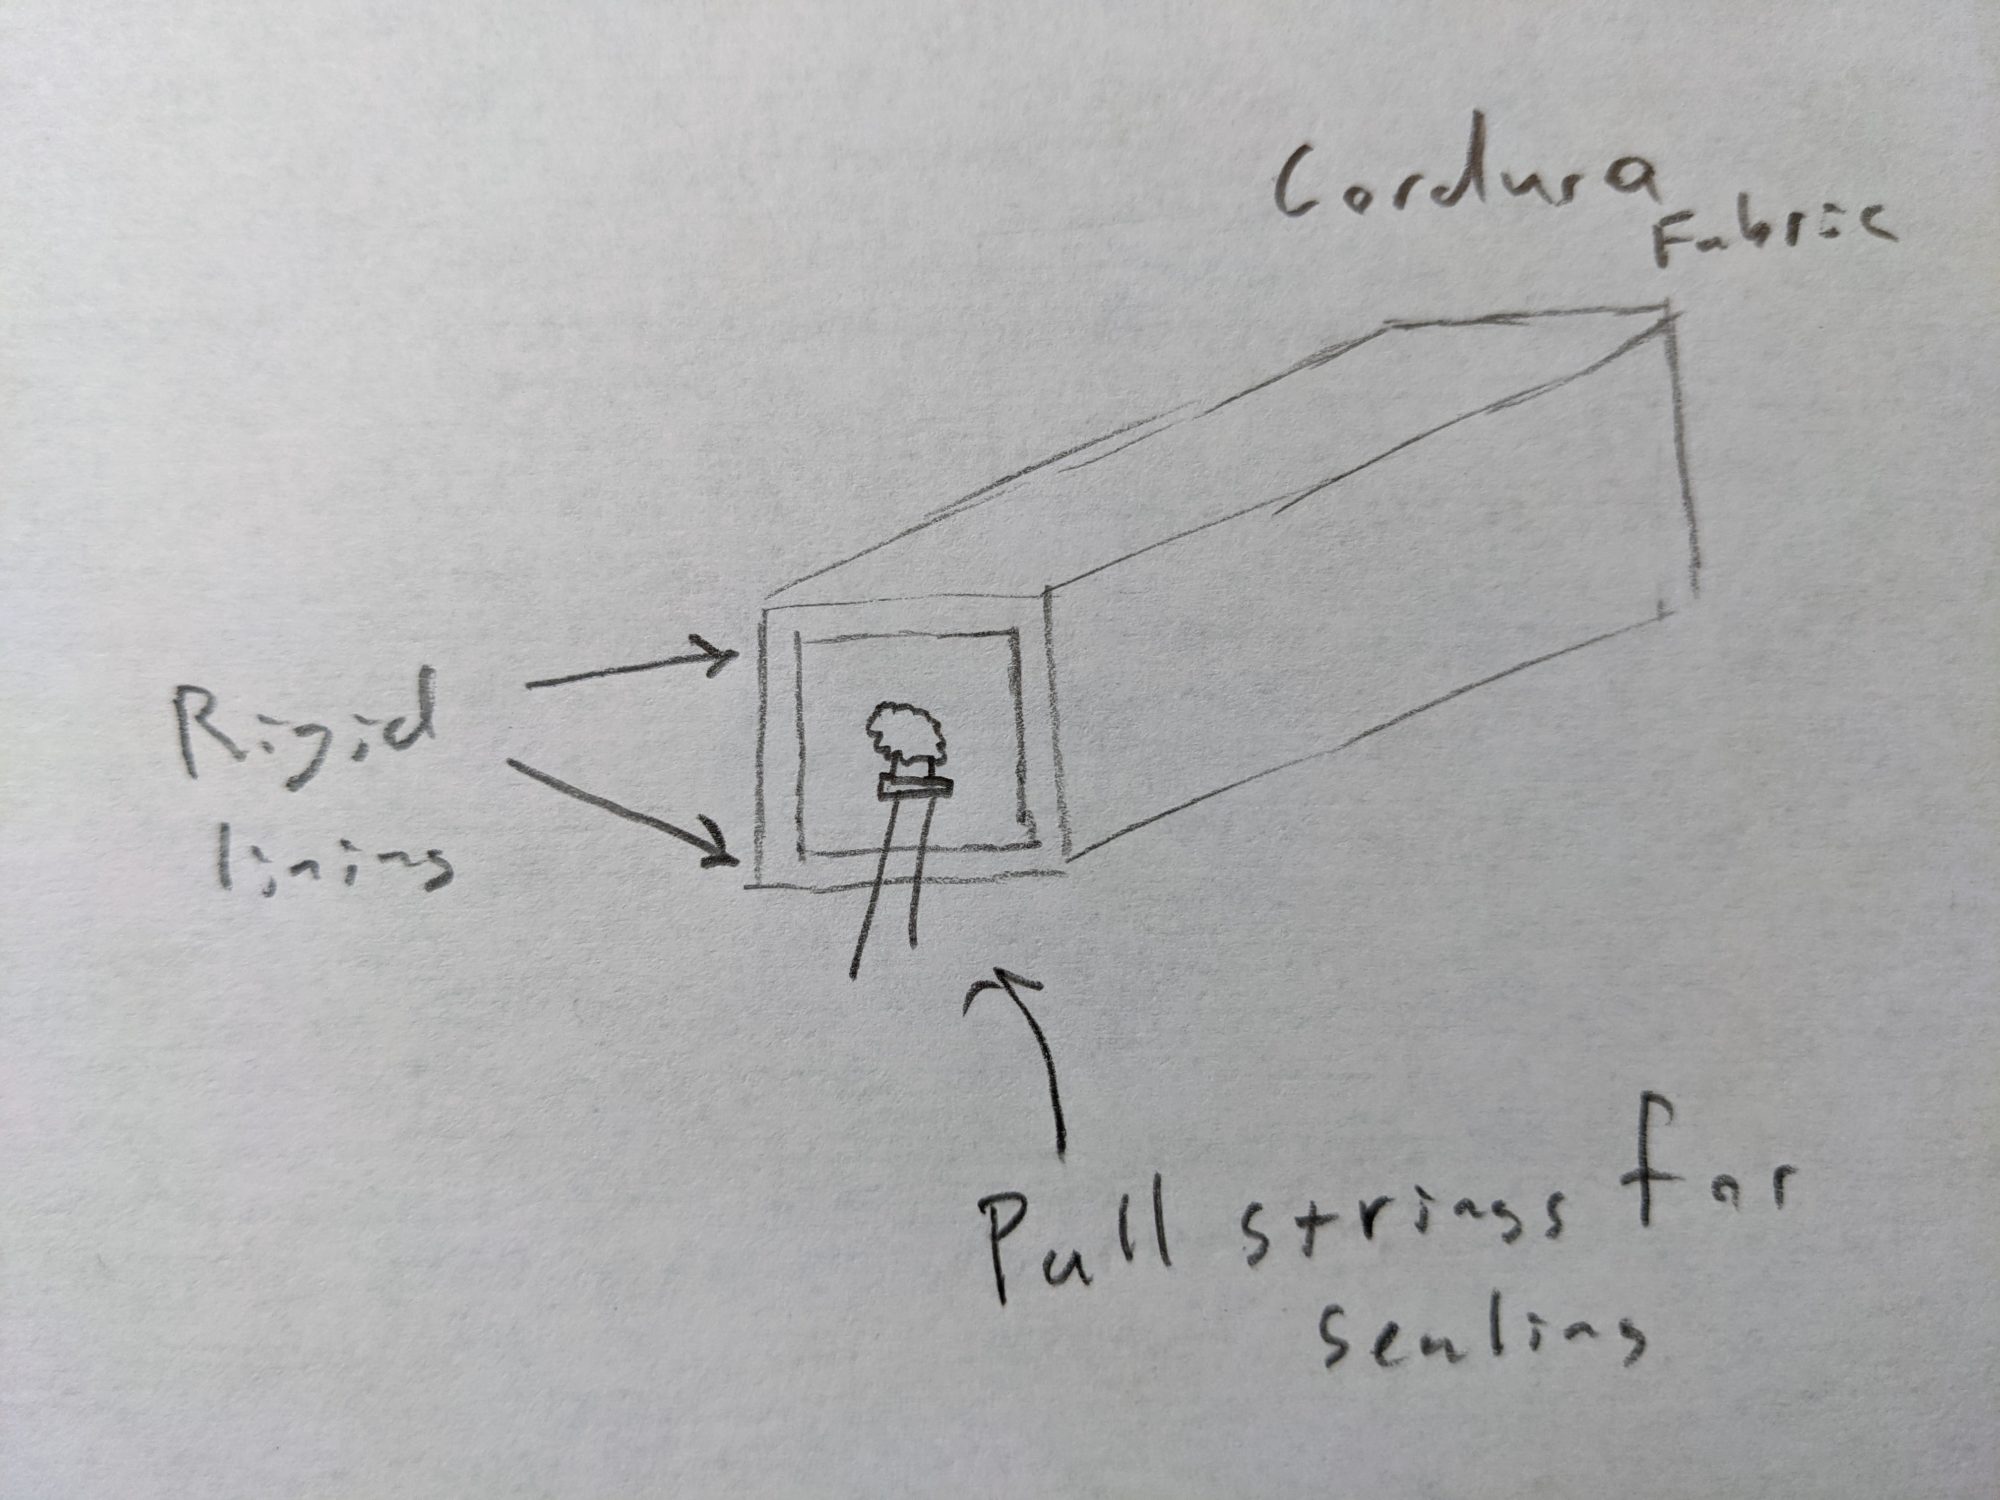 Cordura
Fabric
Rigid
lining
Pull strings for
sealing